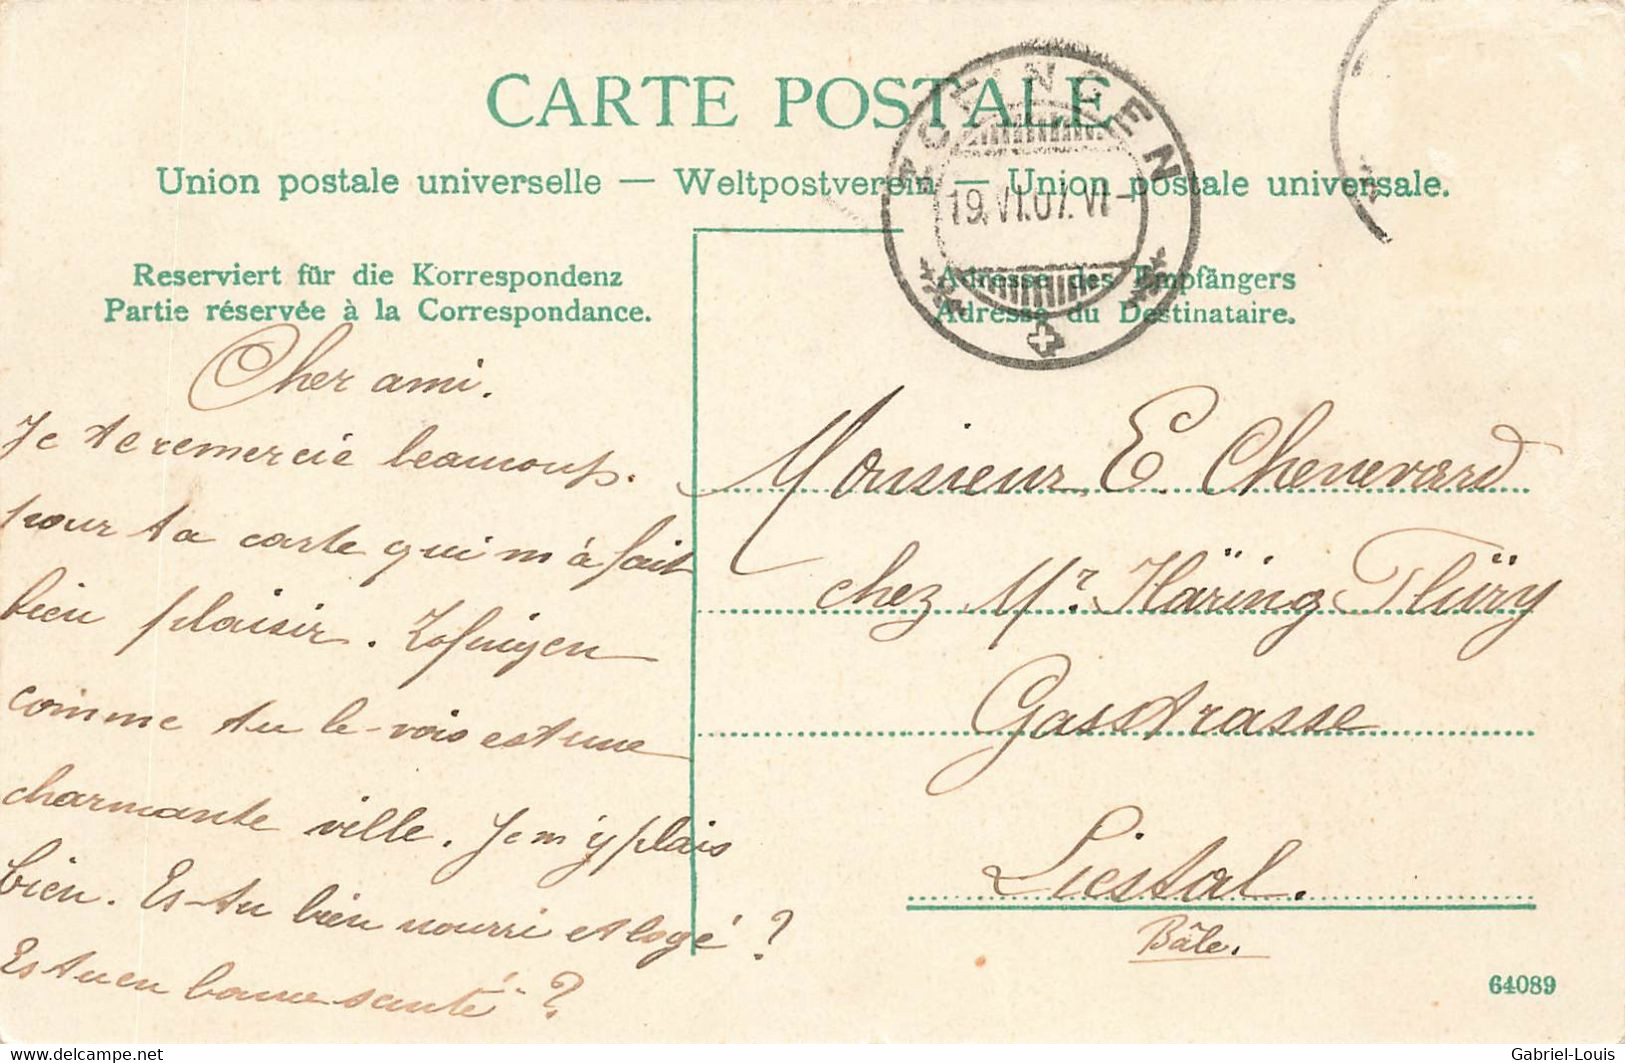 CARTE POSTALE
Union postale universelle — Weltpostverein — Union postale universale.
ZOFINGEN
19.VI.07.VI-
Reserviert für die Korrespondenz
Partie réservée à la Correspondance.
Adresse des Empfängers
Adresse du Destinataire.
Cher ami.
Je te remercie beaucoup.
pour ta carte qui m'à fait
bien plaisir. Zofingen
comme tu le-vois est une
charmante ville. Je m'y plais
bien. Es-tu bien nourri et logé ?
Es tu en bonne santé ?
Monsieur E. Chenevard
chez Mr. Häring Flüry
Gasstrasse
Liestal.
Bâle.
64089
www.delcampe.net
Gabriel-Louis